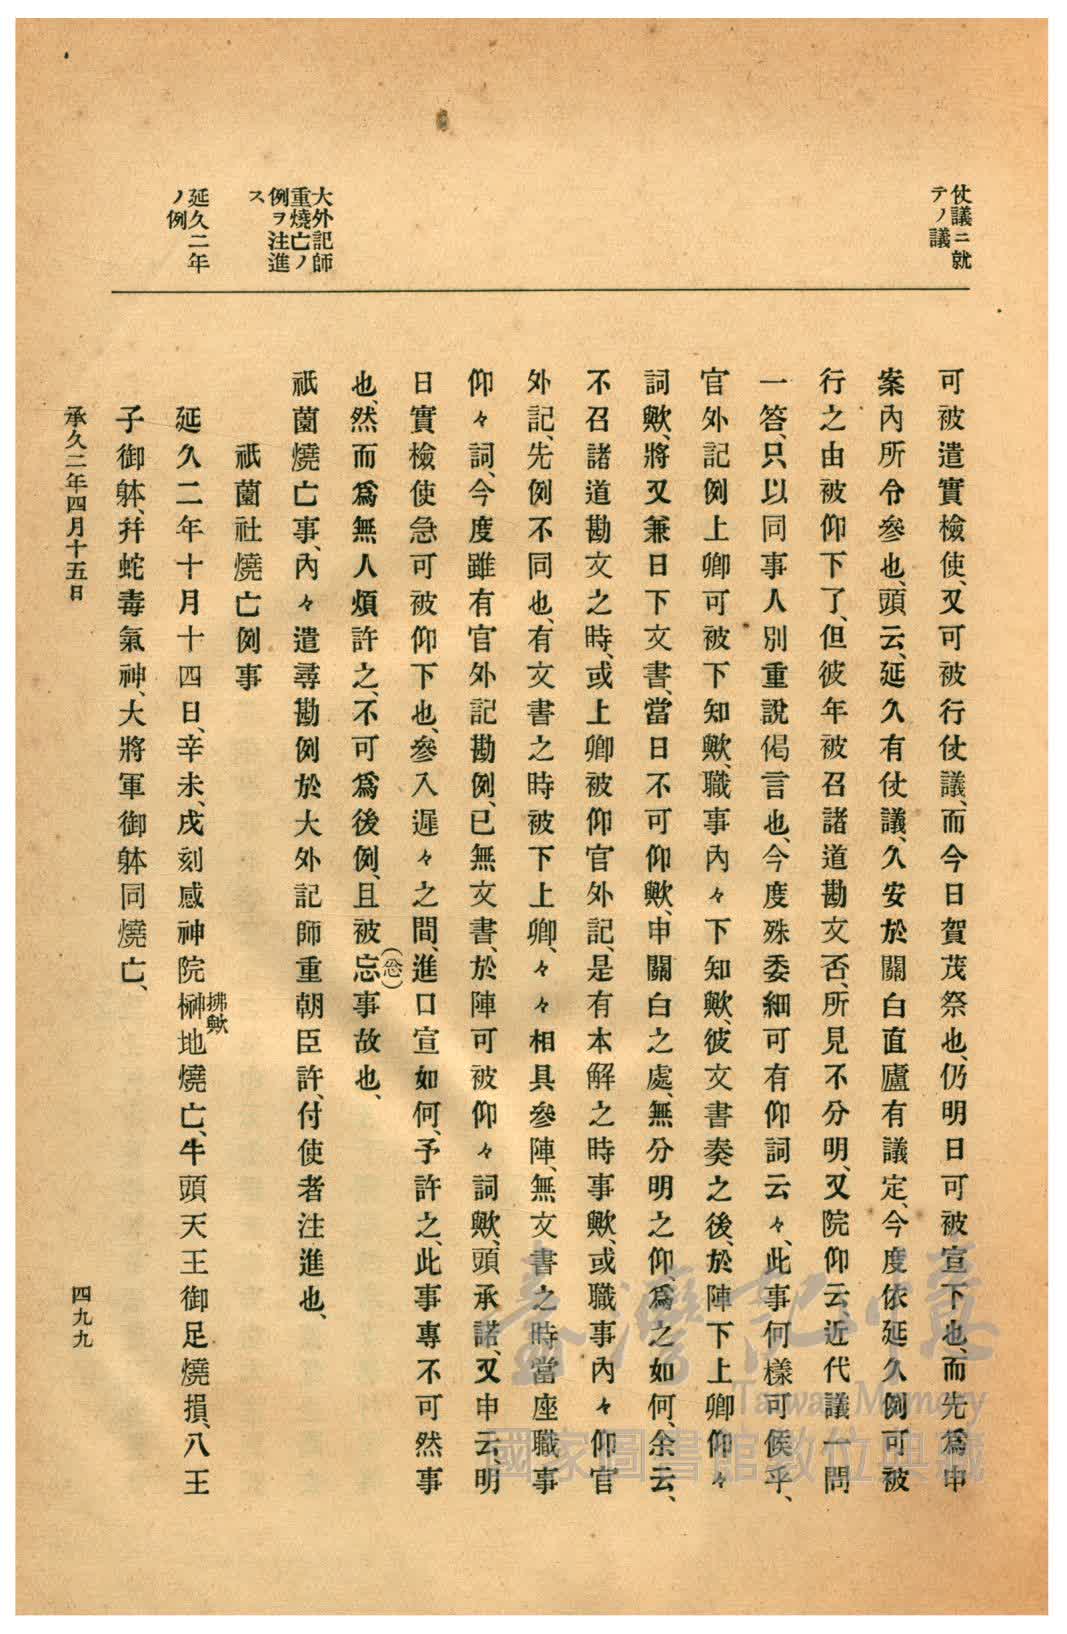 仗議ニ就
テノ議
大外記師
重燒亡ノ
例ヲ注進
ス
延久二年
ノ例
可被遣實檢使、又可被行仗議、而今日賀茂祭也、仍明日可被宣下也、而先爲申
案內所令參也、頭云、延久有仗議、久安於關白直廬有議定、今度依延久例可被
行之由被仰下了、但彼年被召諸道勘文否、所見不分明、又院仰云、近代議一問
一答、只以同事人別重說偈言也、今度殊委細可有仰詞云々、此事何樣可候乎、
官外記例上卿可被下知歟、職事內々下知歟、彼文書奏之後、於陣下上卿仰々
詞歟、將又兼日下文書、當日不可仰歟、申關白之處、無分明之仰、爲之如何、余云、
不召諸道勘文之時、或上卿被仰官外記、是有本解之時事歟、或職事內々仰官
外記、先例不同也、有文書之時被下上卿、々々相具參陣、無文書之時當座職事
仰々詞、今度雖有官外記勘例、已無文書、於陣可被仰々詞歟、頭承諾、又申云、明
日實檢使急可被仰下也、參入遲々之間、進口宣如何、予許之、此事專不可然事
也、然而爲無人煩許之、不可爲後例、且被忘(忩)事故也、
祇薗燒亡事、內々遣尋勘例於大外記師重朝臣許、付使者注進也、
祇薗社燒亡例事
延久二年十月十四日、辛未、戌刻感神院櫴拂歟地燒亡、牛頭天王御足燒損、八王
子御躰、幷蛇毒氣神、大將軍御躰同燒亡、
承久二年四月十五日
四九九
臺灣記憶
Taiwan Memory
國家圖書館數位典藏